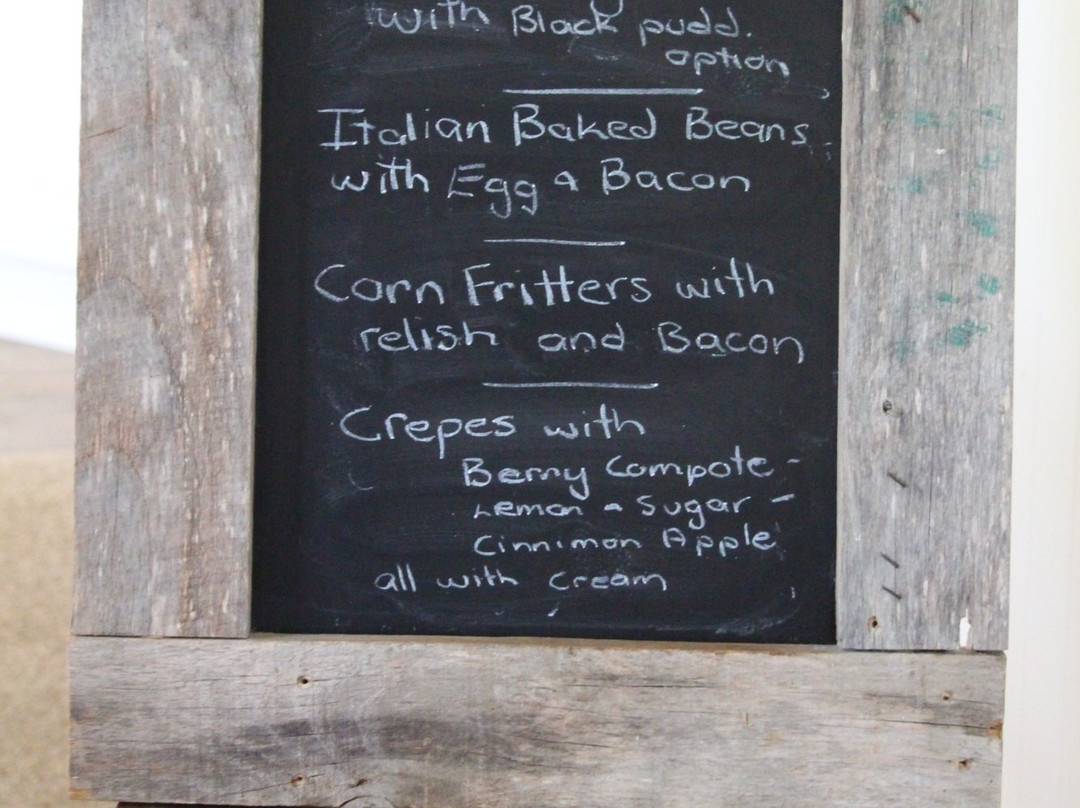 with Black pudd.
option
Italian Baked Beans
with Egg & Bacon
Corn Fritters with
relish and Bacon
Crepes with
Berry Compote -
Lemon & Sugar -
Cinnimon Apple
all with cream